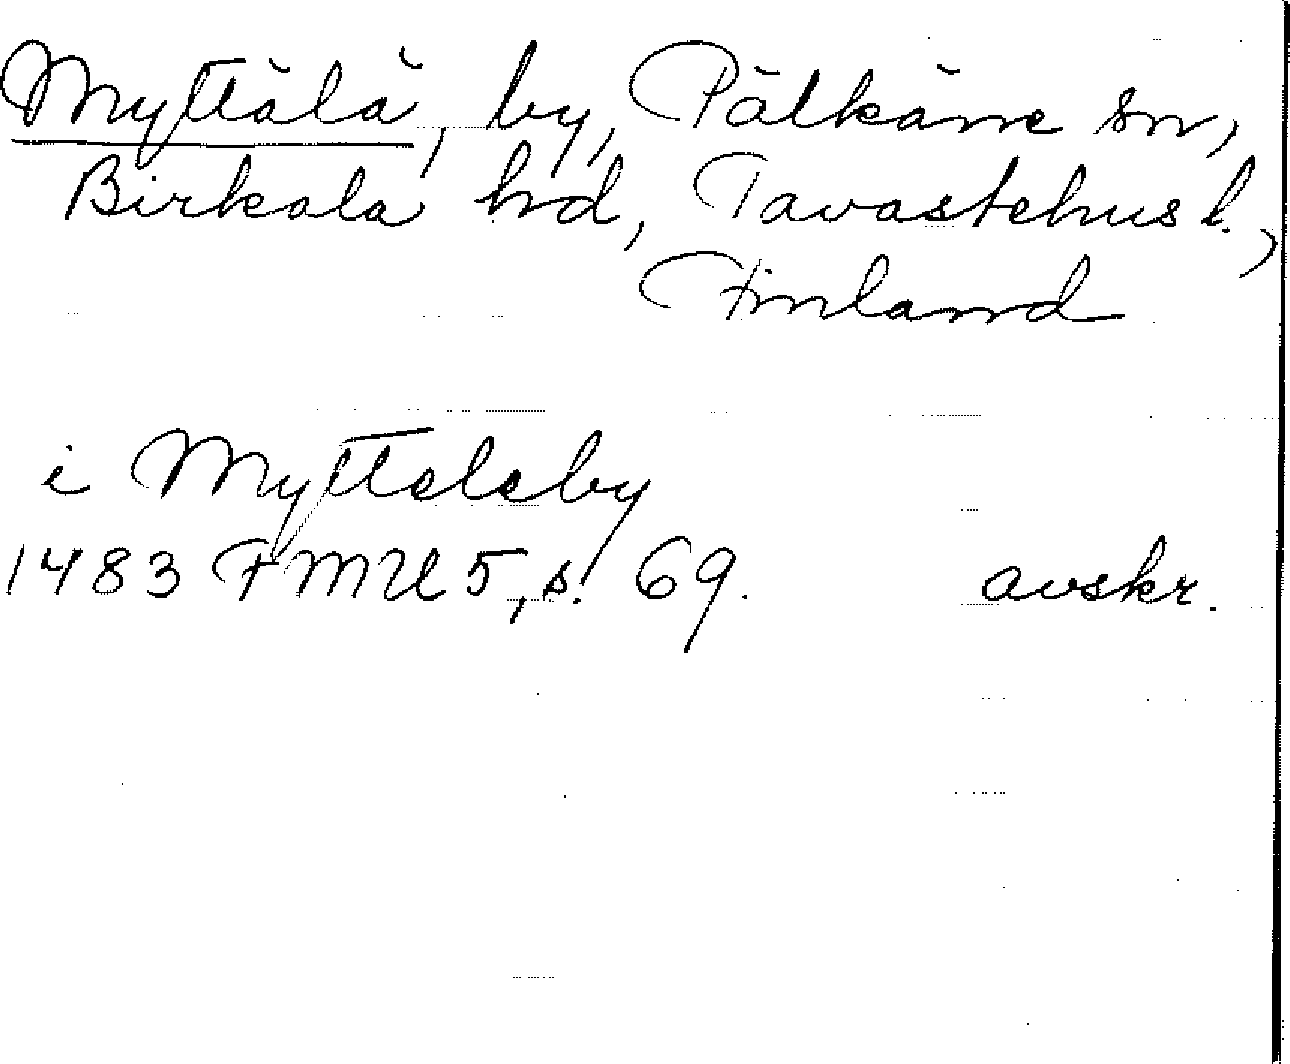 Myttälä, by, Pälkäne sn,
Birkala hd, Tavastehus l.,
Finland
i Mytteleby
1483 FMU 5, s. 69. avskr.